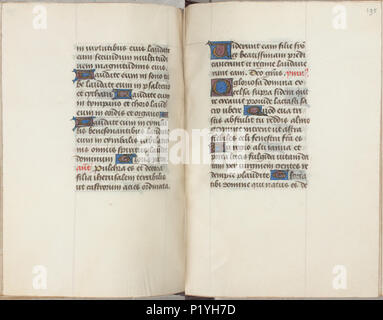 in virtutibus eius laudate
eum secundum multitudi
nem magnitudinis eius.
Laudate eum in sono tu
be laudate eum in psalterio
et cythara. Laudate eum
in tympano et choro laud
eum in cordis et organo
Laudate eum in cymba
lis benesonantibus laudate
eum in cymbalis
nis omnis spiritus laudet
dominum Gloria patri
ant Pulchra es et decora
filia iherusalem terribilis
ut castrorum acies ordinata.
195
Viderunt eam filie syo
et beatissimam predi
caverunt et regine laudave
runt eam. Deo gratias ymnus
O gloriosa domina ex
celsa supra sidera qui
te creavit provide lactasti sa
cro ubere Quod eua tris
tis abstulit tu reddis almo
germine intrent ut astra
flebiles celi fenestra facta es
Tu regis alti ianua et
porta lucis fulgida vitam da
tam per virginem gentes re
dempte plaudite Gloria
tibi domine qui natus es de
alamy
Image ID: P1YH7D
www.alamy.com